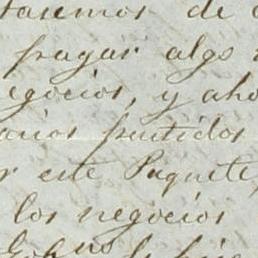 taremos de
pagar algo
egocios, y aho
arios partidos
r este Paquete,
los negocios